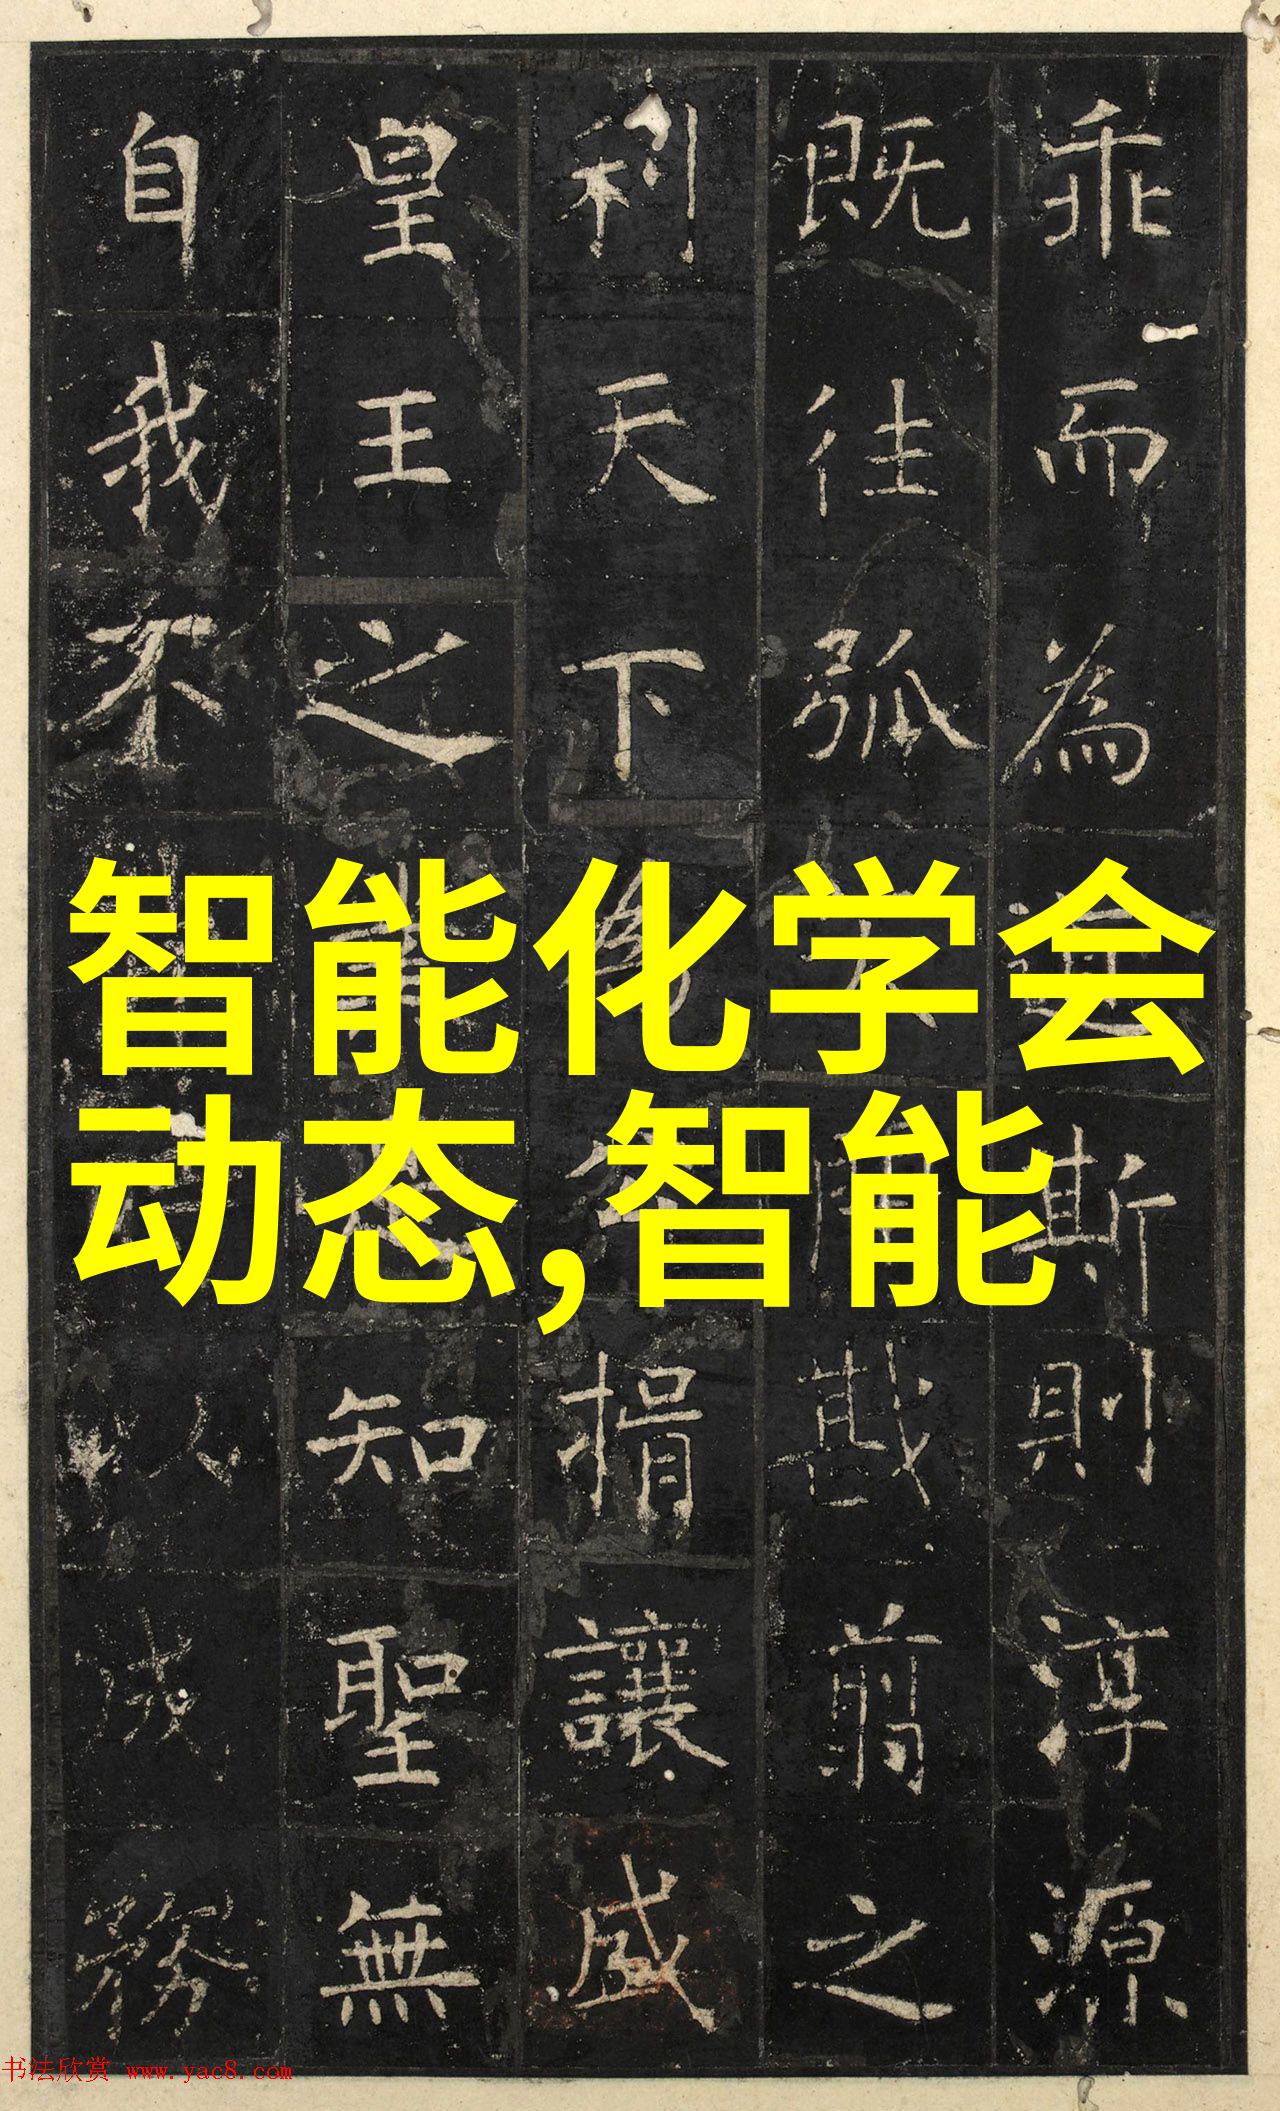 乖而為斯則淳源
既往弧戡翦之
利天下捐讓盛
皇王之知聖無
自我不以成務
智能化学会
动态,智能
书法欣赏 www.yac8.com